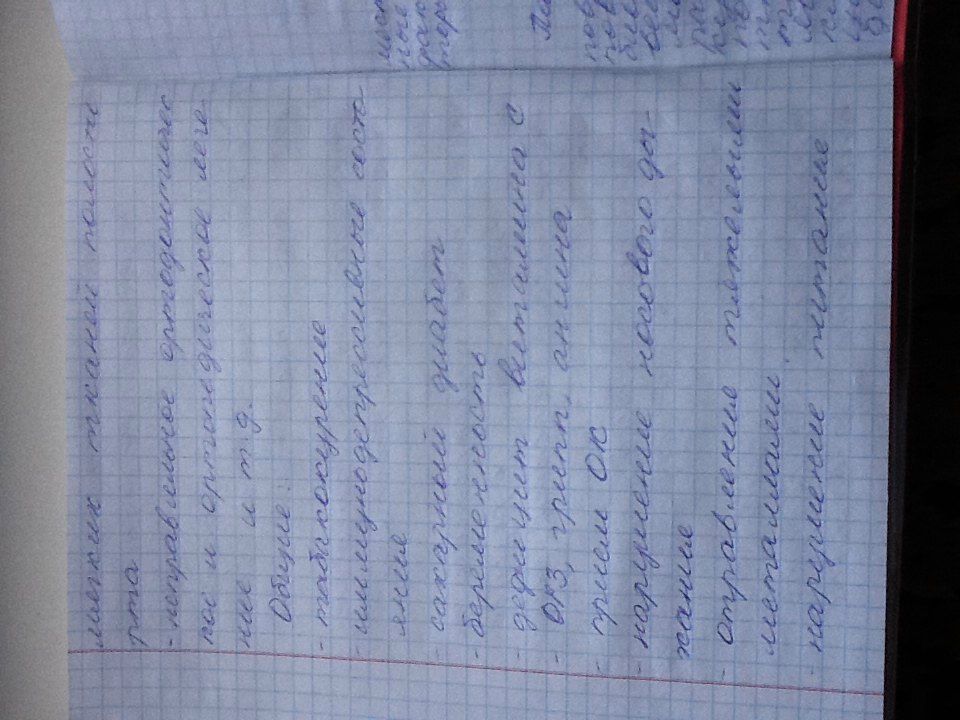 мягких тканей полости
рта
- неправильное ортодонтичес
кое и ортопедическое лече
ние и т.д.
Общие:
- табакокурение
- иммунодепрессивные состо
яние
- сахарный диабет
- беременность
- дефицит витамина С
- ОРЗ, грипп, ангина
- прием ОК
- нарушение носового ды-
хание
- отравление тяжелыми
металлами
- нарушение питание